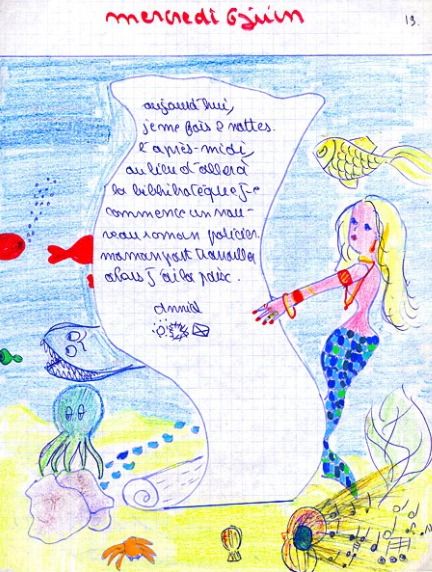 mercredi 6 juin
19.
aujourd'hui,
je me fais 2 nattes.
l'après-midi,
au lieu d'aller à
la bibliothèque je
commence un nou-
veau roman policier.
maman part travailler
alors j'ai la paix.